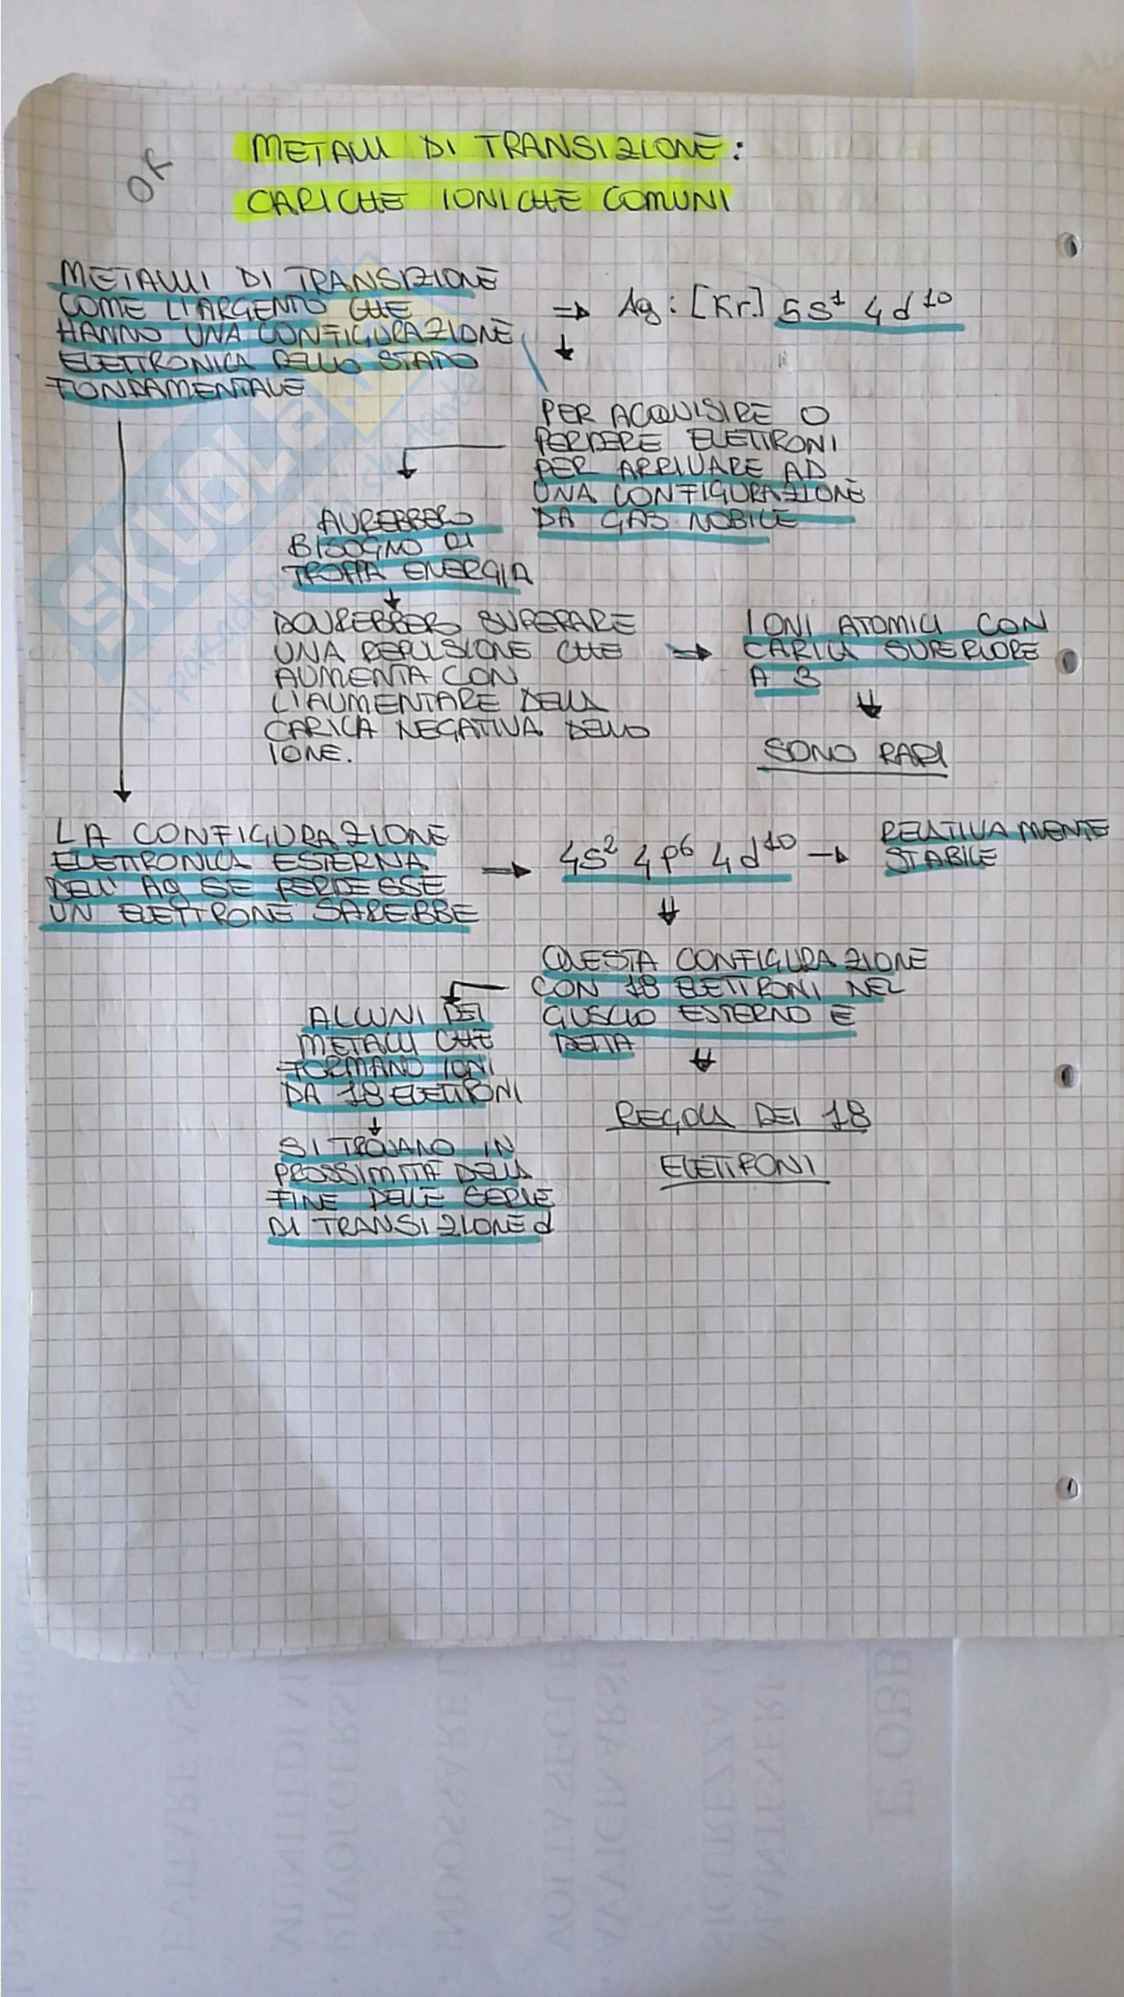 OK
METALLI DI TRANSIZIONE:
CARICHE IONICHE COMUNI
METALLI DI TRANSIZIONE
COME L'ARGENTO CHE
HANNO UNA CONFIGURAZIONE
ELETTRONICA DELLO STATO
FONDAMENTALE
⇒ Ag: [Kr] 5s¹ 4d¹⁰
PER ACQUISIRE O
PERDERE ELETTRONI
PER ARRIVARE AD
UNA CONFIGURAZIONE
DA GAS NOBILE
AVREBBERO
BISOGNO DI
TROPPA ENERGIA
DOVREBBERO SUPERARE
UNA REPULSIONE CHE
AUMENTA CON
L'AUMENTARE DELLA
CARICA NEGATIVA DELLO
IONE.
IONI ATOMICI CON
CARICA SUPERIORE
A 3
SONO RARI
LA CONFIGURAZIONE
ELETTRONICA ESTERNA
DELL'AG SE PERDESSE
UN ELETTRONE SAREBBE
→ 4s² 4p⁶ 4d¹⁰ →
RELATIVAMENTE
STABILE
QUESTA CONFIGURAZIONE
CON 18 ELETTRONI NEL
GUSCIO ESTERNO È
DETTA
REGOLA DEI 18
ELETTRONI
ALCUNI DEI
METALLI CHE
FORMANO IONI
DA 18 ELETTRONI
SI TROVANO IN
PROSSIMITÀ DELLA
FINE DELLE SERIE
DI TRANSIZIONE d
SKUOLA